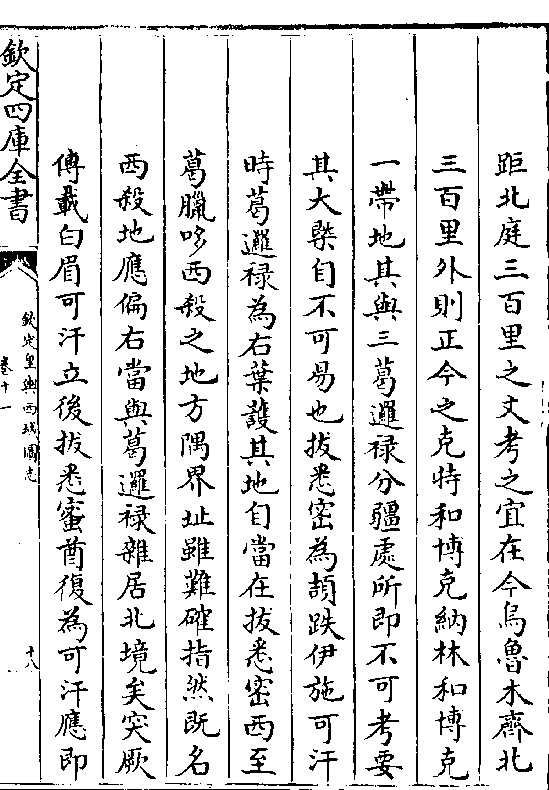 距北庭三百里之文考之宜在今烏魯木齊北
三百里外則正今之克特和博克納林和博克
一帶地其與三葛邏禄分疆處所即不可考要
其大槩自不可易也拔悉密為頡跌伊施可汗
時葛邏禄為右葉護其地自當在拔悉密西至
葛臘哆西殺之地方隅界址雖難確指然既名
西殺地應偏右當與葛邏禄雜居北境矣突厥
傳載白眉可汗立後拔悉蜜酋復為可汗應即
欽定四庫全書
欽定皇輿西域圖志
卷十一
十八